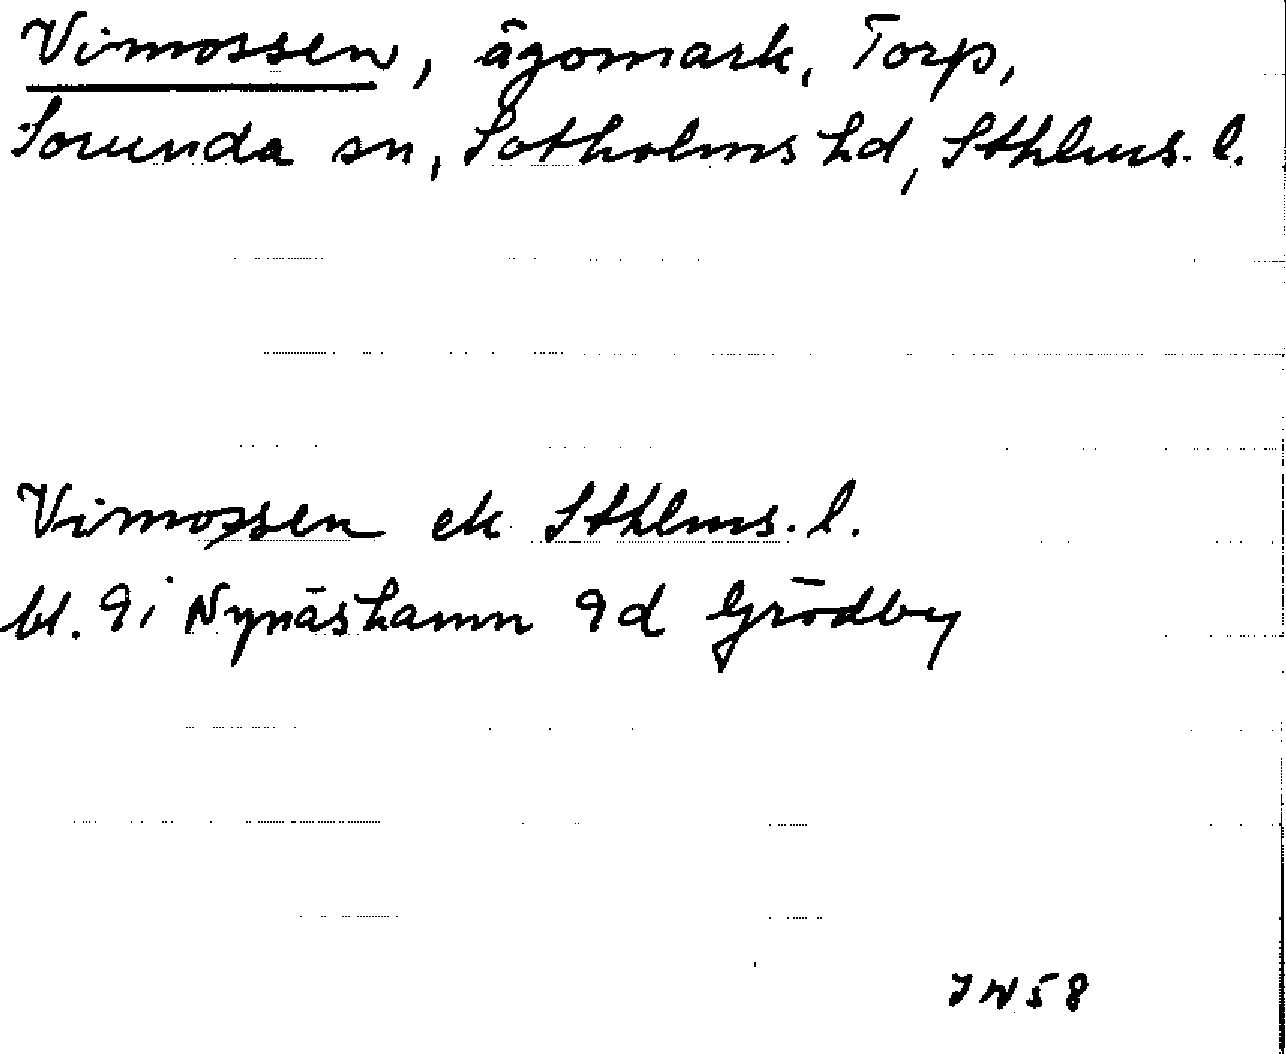 Vimossen, ägomark, Torp,
Sorunda sn, Sotholms hd, Sthlms. l.
Vimossen ek Sthlms. l.
bl. 9i Nynäshamn 9d Grödby
JW58